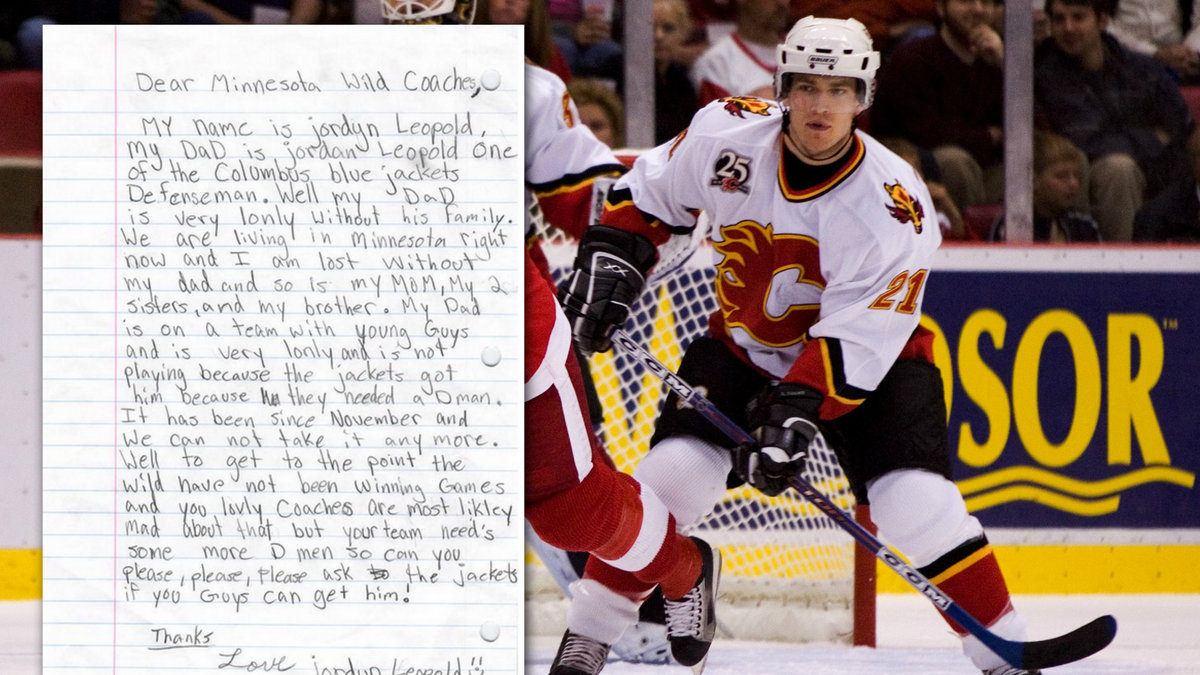 Dear Minnesota Wild Coaches,
MY name is jordyn Leopold,
my DaD is jordan Leopold one
of the Columbus blue jackets
Defenseman. Well my DaD
is very lonly without his family.
We are living in Minnesota right
now and I am lost without
my dad and so is my MOM, My 2
sisters, and my brother. My Dad
is on a team with young Guys
and is very lonly and is not
playing because the jackets got
him because they needed a Dman.
It has been since November and
We can not take it any more.
Well to get to the point the
wild have not been winning Games
and you lovly Coaches are most likley
mad about that but your team need's
some more D men so can you
please, please, Please ask to the jackets
if you Guys can get him!
Thanks
Love jordyn Leopold
BAUER
25
C
21
CCM
CCM
DSOR
TM